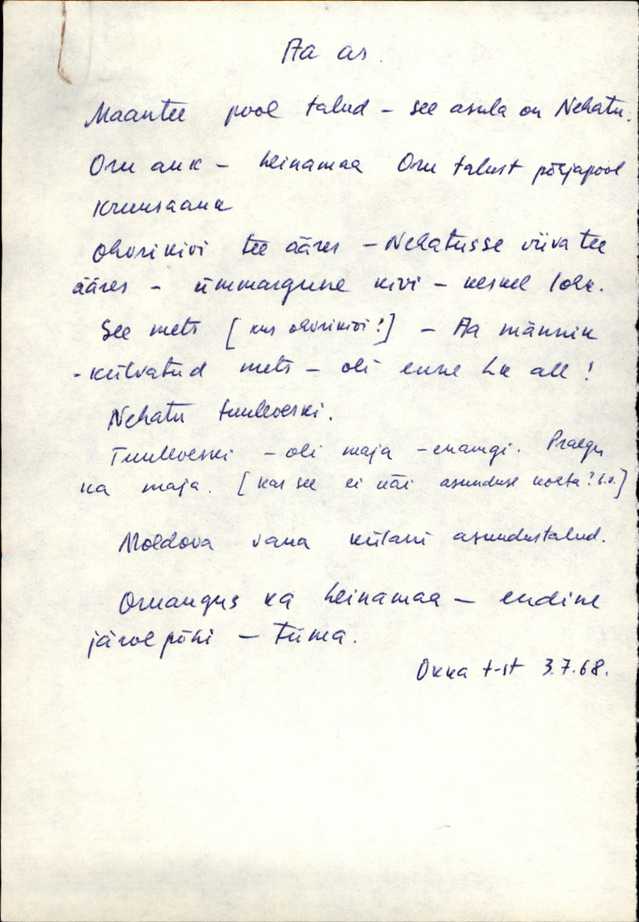 Aa as.
Maantee pool talud – see asula on Nehatu.
Oru auk – heinamaa Oru talust põhjapool
Kruusaauk
Ohvrikivi tee ääres – Nehatusse viiva tee
ääres – ümmargune kivi – keskel lohk.
See mets [kus ohvrikivi!] – Aa männik
- külvatud mets – oli enne all!
Nehatu tuuleveski.
Tuuleveski – oli maja – enamgi. Praegu
ka maja. [Kas see ei käi asunduse kohta?]
Moldova vana külani asundustalud.
Oruaugus ka heinamaa – endine
järve põhi – Tüma.
Okka t-st 3.7.68.